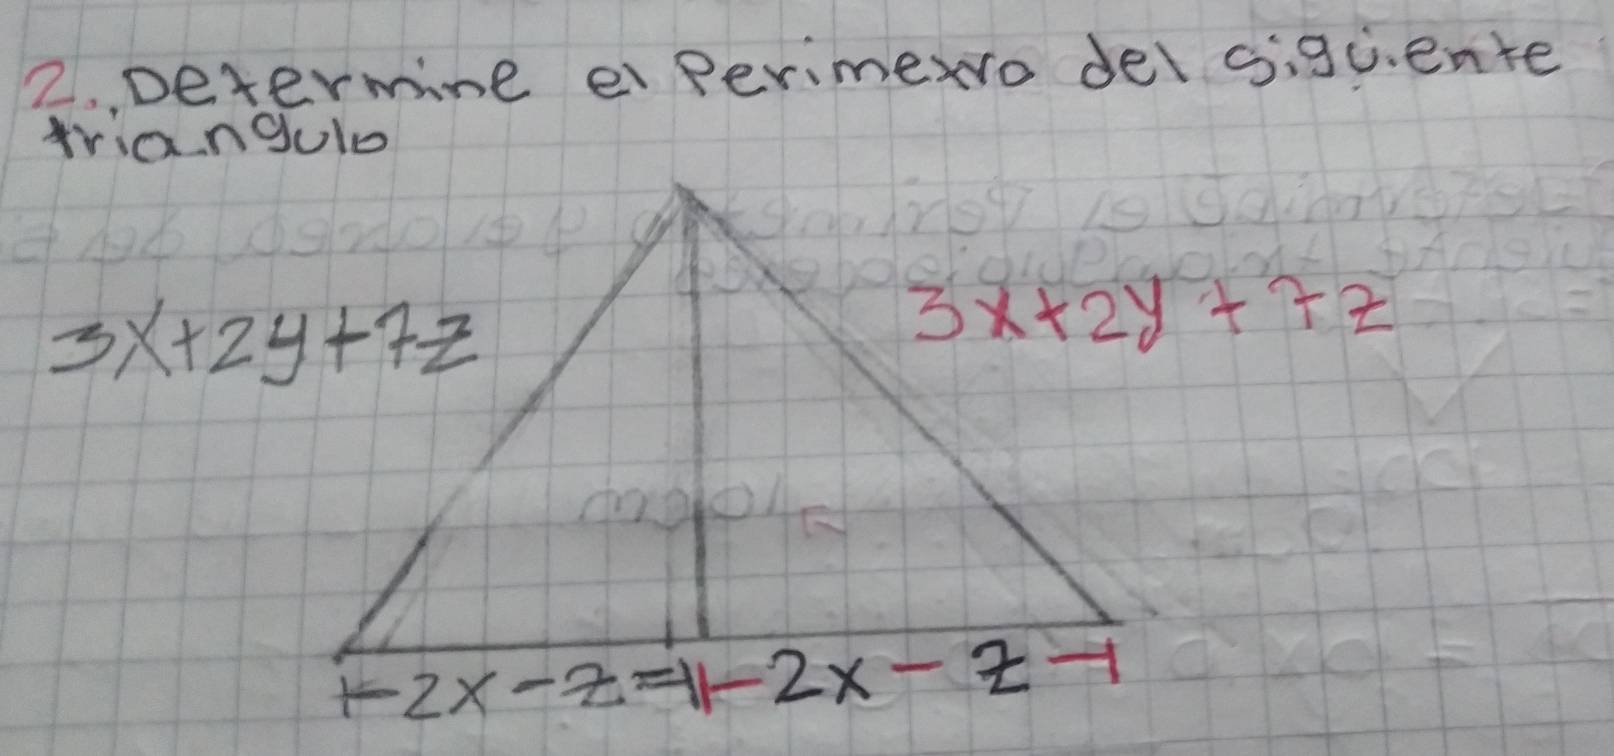 2. Determine el Perimetro del siguiente
triangulo
3x+2y+7z
3x+2y+7z
⊢2x-z⊣⊢2x-z⊣